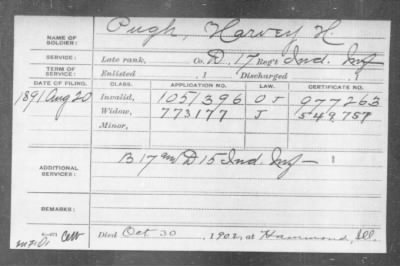 NAME OF SOLDIER: Pugh, Harvey H.
SERVICE: Late rank, Co. D, 17 Reg't Ind. Inf
TERM OF SERVICE: Enlisted , 1 Discharged , 1
DATE OF FILING. CLASS. APPLICATION NO. LAW. CERTIFICATE NO.
1891 Aug 20 Invalid, 1051396 977263
Widow, 773177 J 549,757
Minor,
ADDITIONAL SERVICES: B 17 and D 15 Ind. Inf
REMARKS:
Died Oct 30, 1902, at Hammond, Ill.